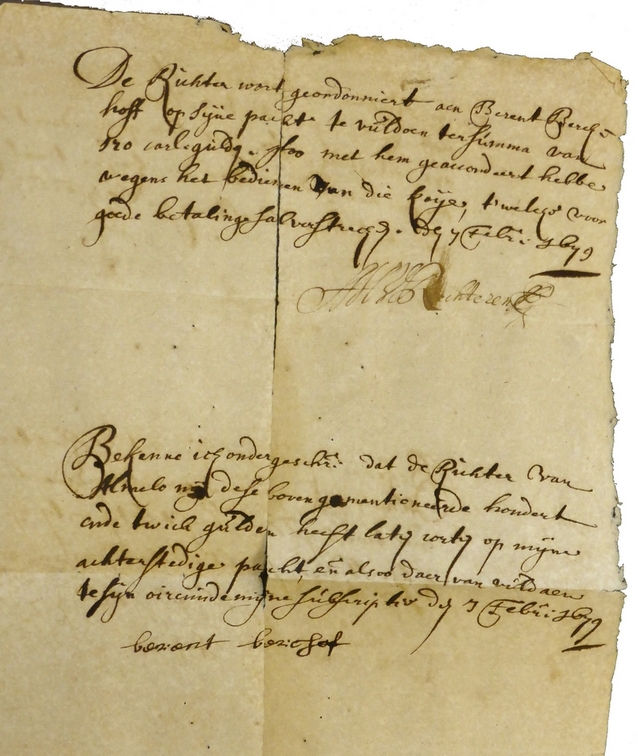 De Richter wort geordonniert aen Berent Berch-
hoff op sijne pacht te vuldoen ter summa van
120 carls guld. soo met hem geaccordeert hebbe
wegens het bedienen van die
goede betalinge sal verstrecken. den 7 Febri 1679
Rechteren
Bekenne ich ondergeschr. dat de Richter van
Almelo mij dese bovengementioneerde hondert
ende twich gulden heeft laten corten op mijne
achterstedige pacht, en alsoo daer van vuldaen
te sijn oircunde mijne subscriptio den 7 Febri 1679
berent berchof